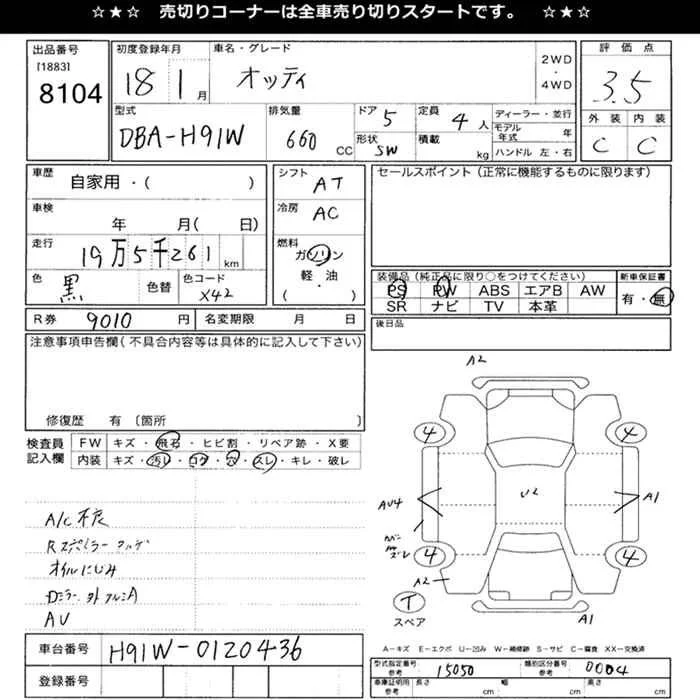 ☆★☆ 売切りコーナーは全車売り切りスタートです。 ☆★☆
出品番号
[1883]
8104
初度登録年月
18 1 月
車名・グレード
オッティ
2WD
・
4WD
評価点
3.5
外装 内装
C C
型式
DBA-H91W
排気量
660 CC
ドア 5
形状 SW
定員 4 人
積載 kg
ディーラー・並行
モデル年式 年
ハンドル 左・右
車歴
自家用・( )
車検
年 月( 日)
走行
19万5千261 km
色
黒
色替
色コード
X42
シフト
AT
冷房
AC
燃料
ガソリン
軽・油
( )
セールスポイント(正常に機能するものに限ります)
装備品(純正品に限り○をつけてください)
PS PW ABS エアB AW
SR ナビ TV 本革
新車保証書
有・無
後日品
R券 9010 円
名変期限 月 日
注意事項申告欄(不具合内容等は具体的に記入して下さい)
修復歴 有 〔箇所
検査員
記入欄
FW キズ・飛石・ヒビ割・リペア跡・X要
内装 キズ・汚レ・コゲ・穴・スレ・キレ・破レ
A/C不良
オイルにじみ
AU
A2
4 4
AU4
U2
A1
4 4
A2
T
スペア
A1
A-キズ E-エクボ U-凹み W-補修跡 S-サビ C-腐食 XX-交換済
車台番号
H91W-0120436
登録番号
型式指定番号
参考 15050
類別区分番号
参考 0004
車庫証明用
参考
長さ cm
幅 cm
高さ cm